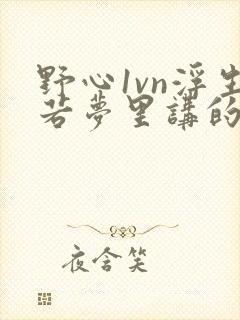 野心1vn浮生
若夢里講的
夜含笑